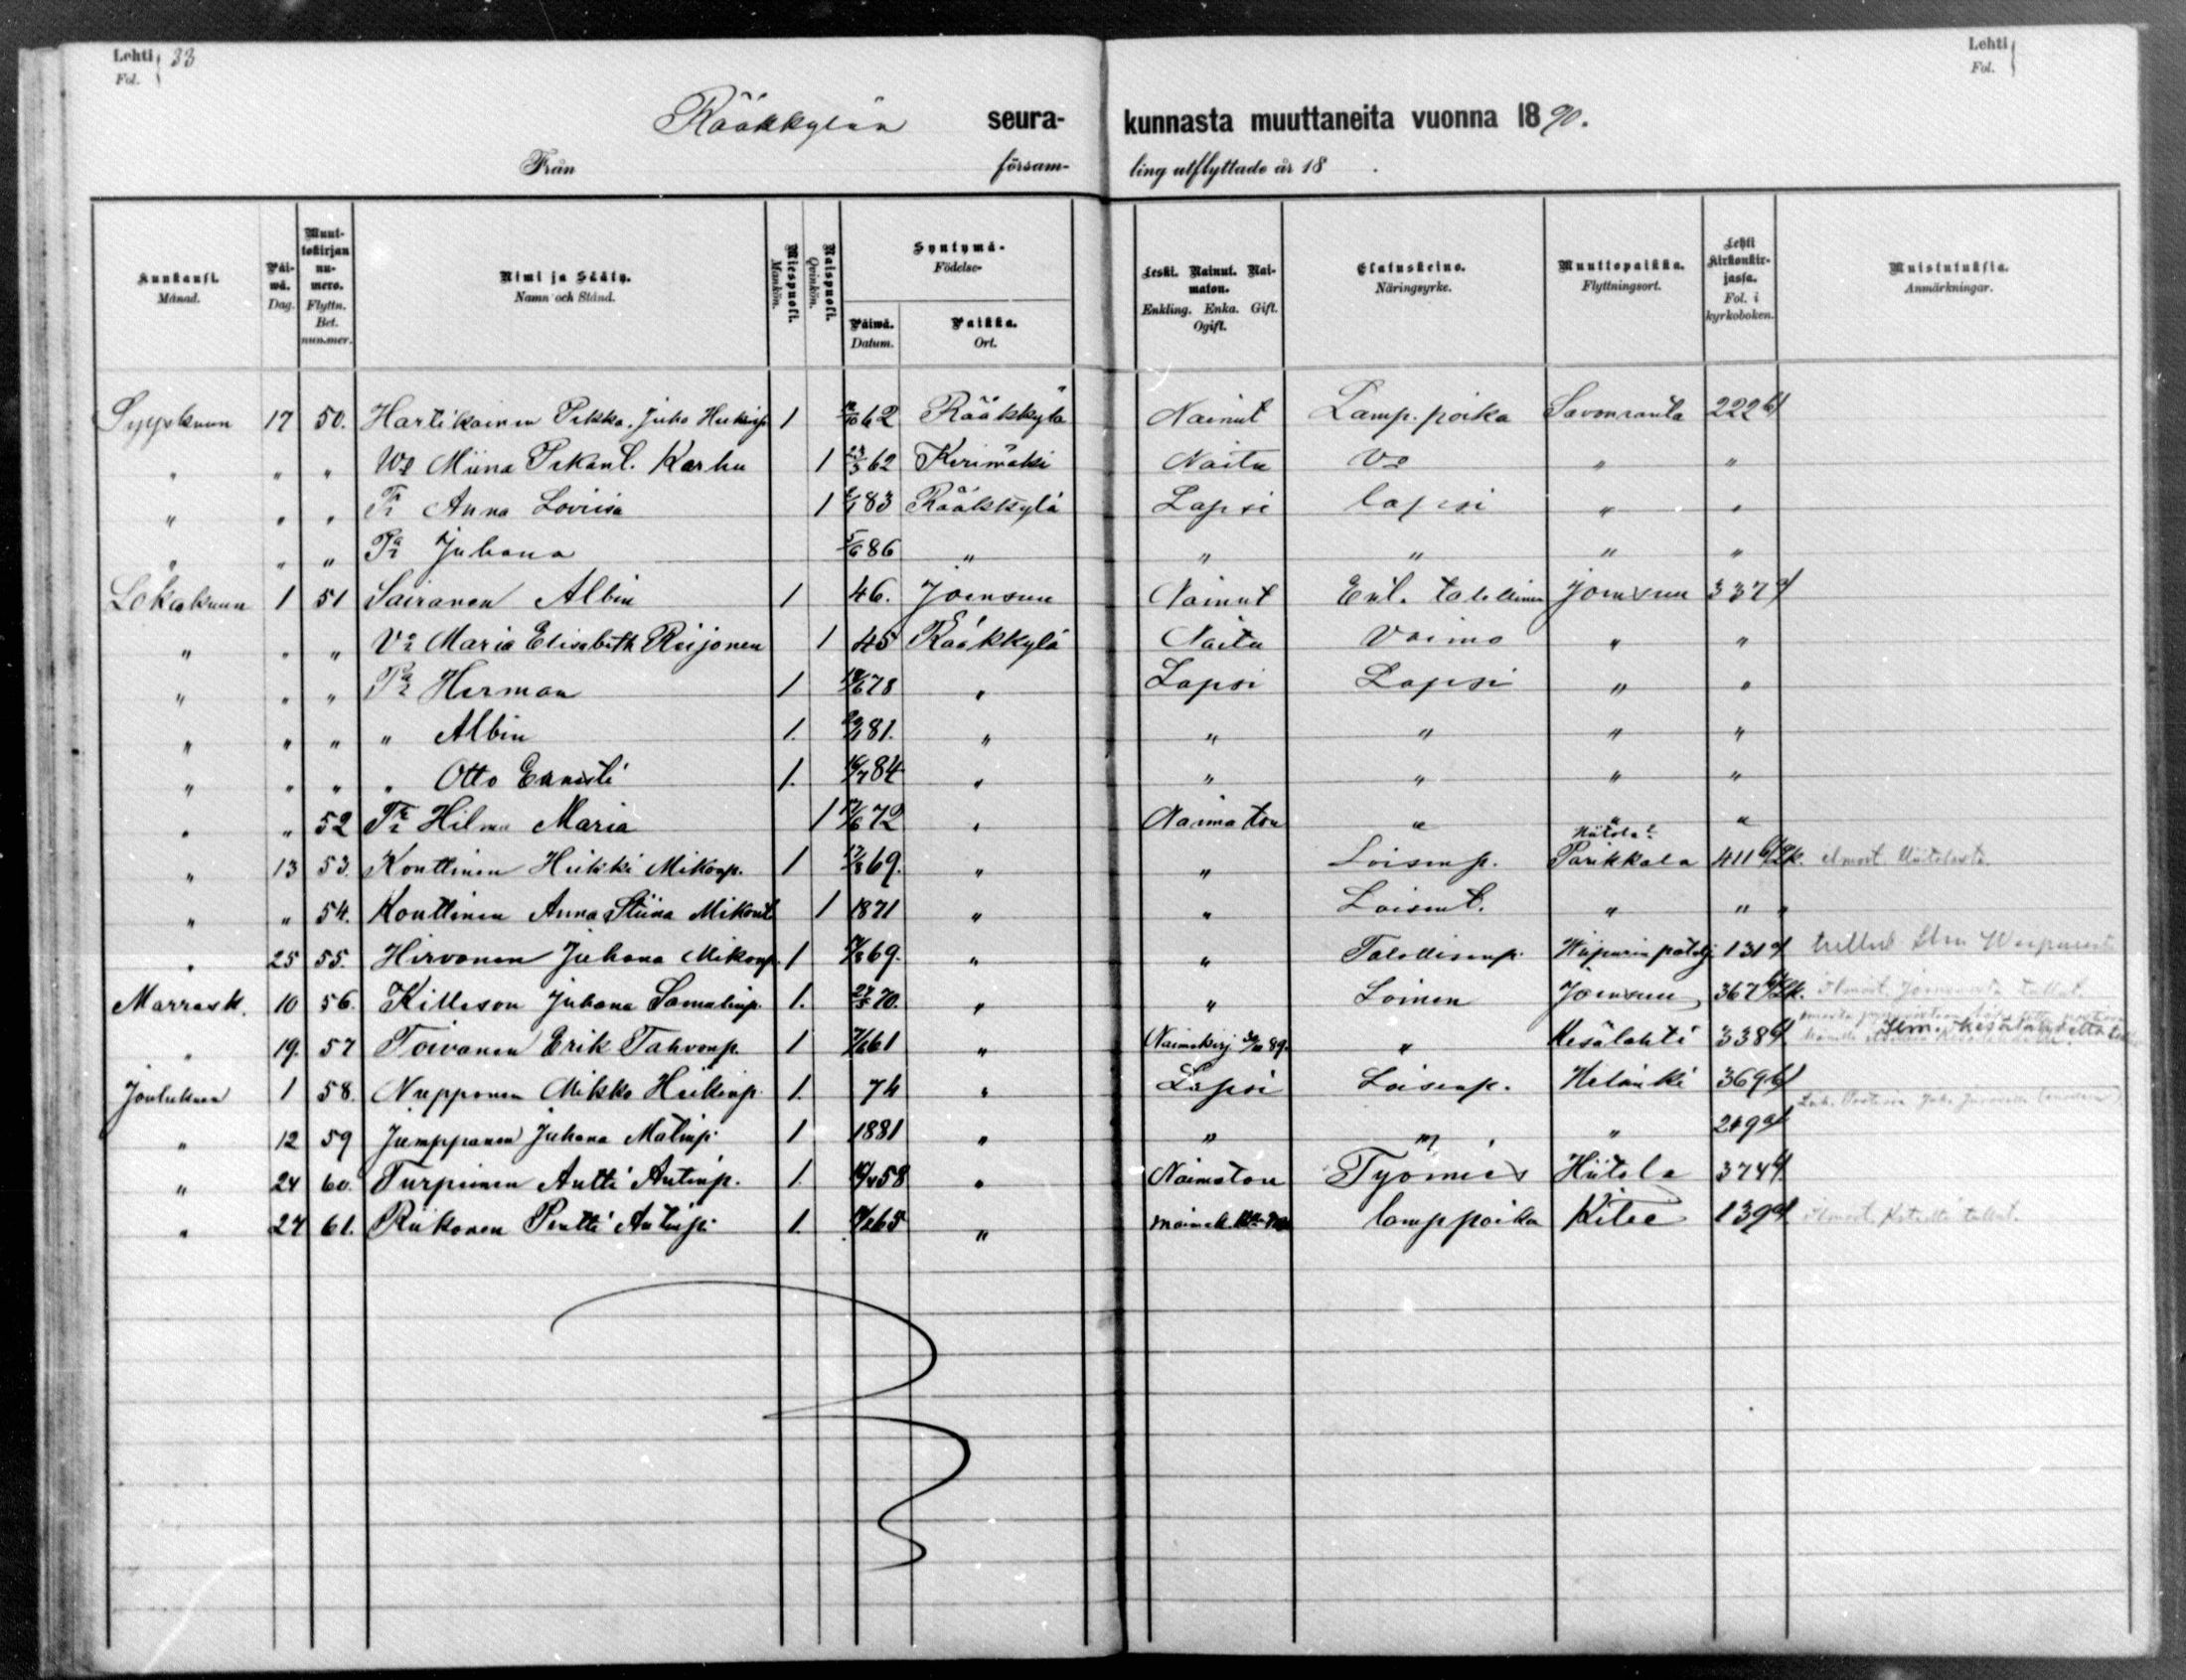 Lehti 33
Fol.
Lehti
Fol.
Rääkkylän seura- kunnasta muuttaneita vuonna 1890.
Från församling utflyttade år 18 .
Kuukausi. Månad.
Päiwä. Dag.
Muuttokirjan numero. Flyttn. Bet. nummer.
Nimi ja Sääty. Namn och Stånd.
Miespuoli. Mankön.
Naispuoli. Qvinkön.
Syntymä- Födelse-
Päiwä. Datum.
Paikka. Ort.
Leski. Nainut. Naimaton. Enkling. Enka. Gift. Ogift.
Elatuskeino. Näringsyrke.
Muuttopaikka. Flyttningsort.
Lehti kirkonkirjasta. Fol. i kyrkoboken.
Muistutuksia. Anmärkningar.
Syyskuun 17 50. Hartikainen Pekka, Juho Heikinp. 1 62 Rääkkylä Nainut Lamp. poika Savonranta 222 b/
" " " Wo Miina Pekant. Karhu 1 62 Kerimäki Naitu Vo " "
" " " Tr Anna Loviisa 1 83 Rääkkylä Lapsi lapsi " "
" " " Pa Juhana 5/6 86 " " " " "
Lokakuun 1 51 Sairanen Albin 1 46. Joensuu Nainut Ent. talollinen Joensuu 337 a/
" " " Vo Maria Elisabeth Reijonen 1 45 Rääkkylä Naitu Vaimo " "
" " " Pa Herman 1 78 " Lapsi Lapsi " "
" " " " Albin 1. 81. " " " " "
" " " " Otto Ernesti 1. 84 " " " " "
" " 52 Tr Hilma Maria 1 72 " Naimaton " " "
Hiitola?
" 13 53. Konttinen Heikki Mikonp. 1 69. " " Loisenp. Parikkala 411 b/ Lk. ilmoit. Hiitolasta.
" " 54. Konttinen Anna Stiina Mikont. 1 1871 " " Loisent. " " "
" 25 55. Hirvonen Juhana Mikonp. 1 69. " " Talollisenp. Wiipurin pitäj. 131 a/ tullut
Marrask. 10 56. Killeson Juhana Samulinp. 1. 70. " " Loinen Joensuu 367 b/ Lk. Ilmoit. Joensuusta tullut.
" 19. 57 Toivanen Erik Tahvonp. 1 61 " Naimakirj 89. " Kesälahti 338 b/ Ilm. Kesälahdelta
Joulukuun 1 58. Nupponen Mikko Heikinp. 1. 74 " Lapsi Loisenp. Helsinki 369 b/
" 12 59 Jumppanen Juhana Matinp. 1 1881 " " " "
" 24 60. Turpinen Antti Antinp. 1. 58 " Naimaton Työmies Hiitola 374 b/
" 27 61. Riikonen Pentti Antinp. 1. 65 " lamppoika Kitee 139 a/ Ilmoit. Kiteelle tullut.